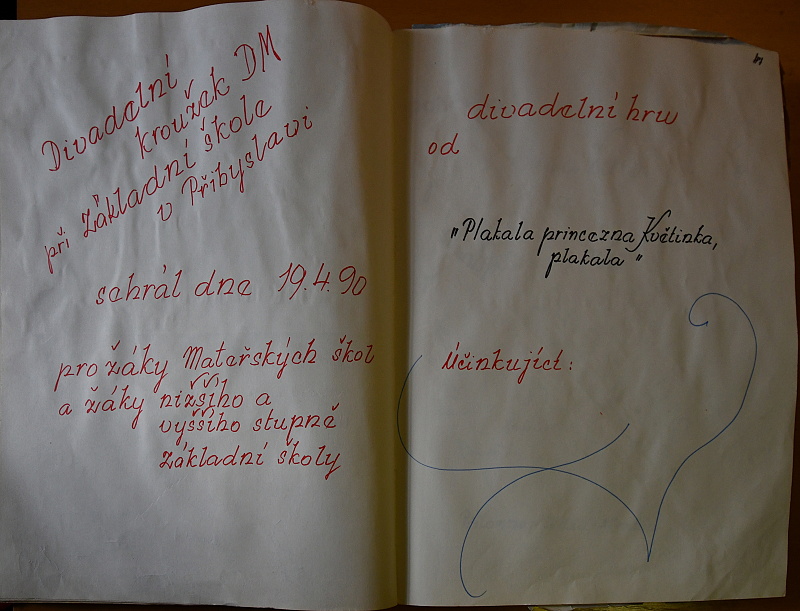 Divadelní
kroužek DM
při Základní škole
v Přibyslavi
sehrál dne 19.4.90
pro žáky Mateřských škol
a žáky nižšího a
vyššího stupně
základní školy
divadelní hru
od
"Plakala princezna Květinka,
plakala"
Účinkující: